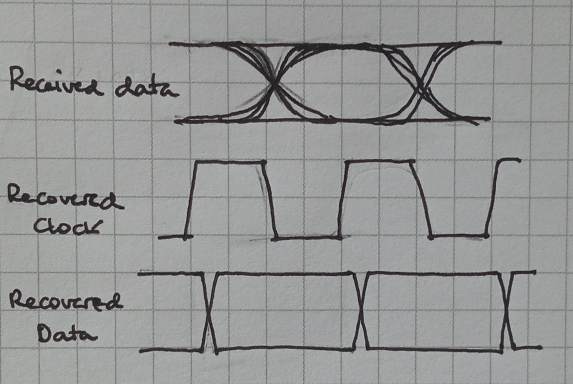 Received data
Recovered
Clock
Recovered
Data